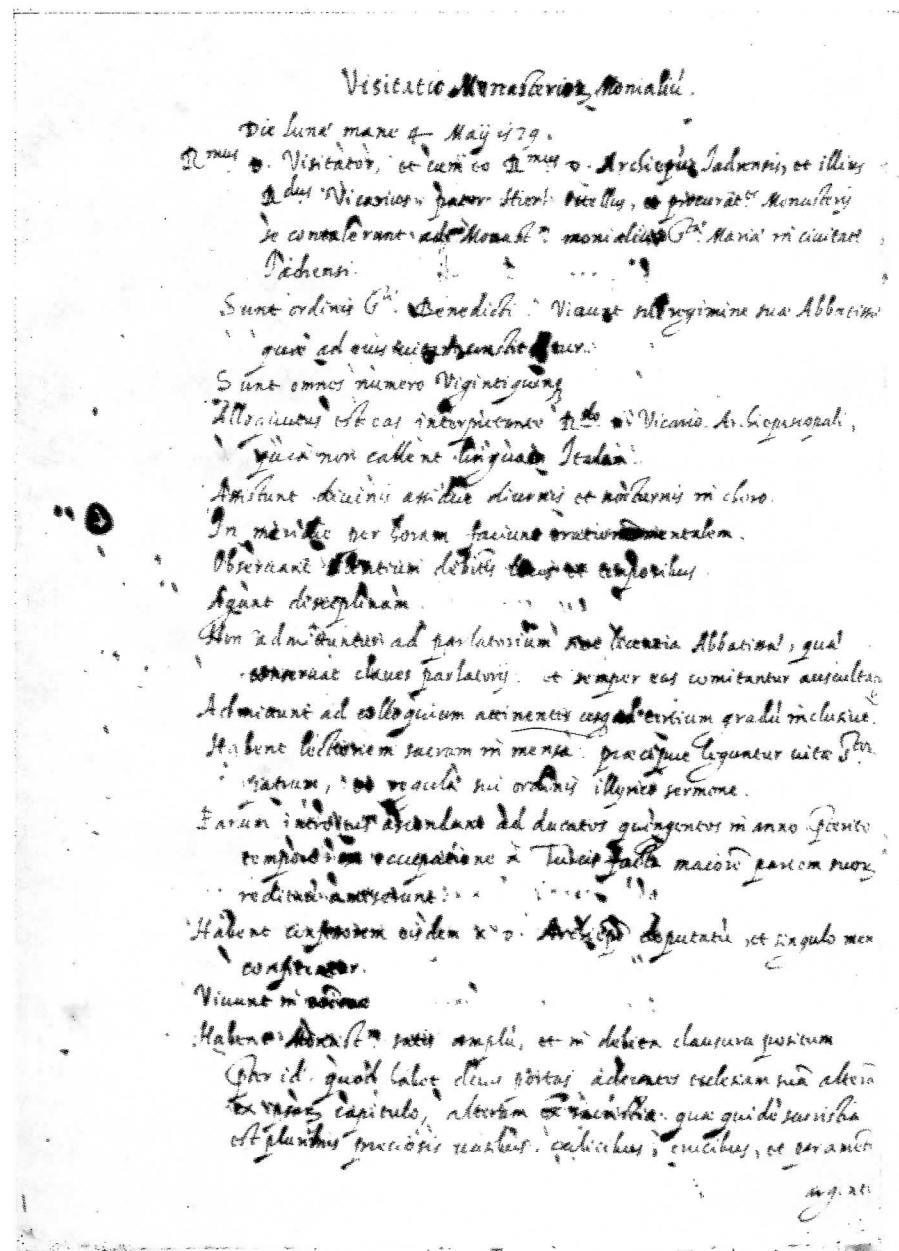 Visitatio Monasterior Monialiũ.
Die lunæ mane 4 Maij 1579.
R mus D. Visitator, et cum eo R mus D. Archiepũs Jadrensis, et illius
R dus Vicarius pater Hier. Vitellus, et procurat. Monasterij
se contulerunt ad Monast m monialiũ S tæ Mariæ in civitate
Jadrensi.
Sunt ordinis S ti Benedicti. Vivunt sub regimine suæ Abbatissæ
quæ ad eius
Sunt omnes numero Vigintiquinq
Allocutus est eas interpretante R do D. Vicario Archiepiscopali,
quia non callent linguam Italam.
Assistunt divinis assidue diurnis et nocturnis in choro.
In meridie per horam faciunt orationem mentalem.
Observant silentium debitis locis et temporibus.
Agunt disciplinam.
Non admittuntur ad parlatorium sine licentia Abbatissæ, quæ
conservat claves parlatorij. et semper eas comitantur auscultat
Admittunt ad colloquium attinentes usq ad tertium gradũ inclusive.
Habent lectionem sacram in mensa. præcipue leguntur vitæ S tor
Patrum, et regula sui ordinis illyrico sermone.
Earum introitus ascendunt ad ducatos quingentos in anno
temporis occupatione à Turcis facta maiorẽ partem suor
redituũ amiserunt.
Habent confessorem eisdem R D. Archiepõ deputatũ, et singulo men
confitentur.
Vivunt in
Habent Monast m satis amplũ, et in debita clausura positum
pter id quod habet duas portas adeuntes ecclesiam suã alterã
capitulo, alteram ex sacristia. quæ quidẽ sacristia
est pluribus preciosis vasibus. calicibus, crucibus, et parament
argent